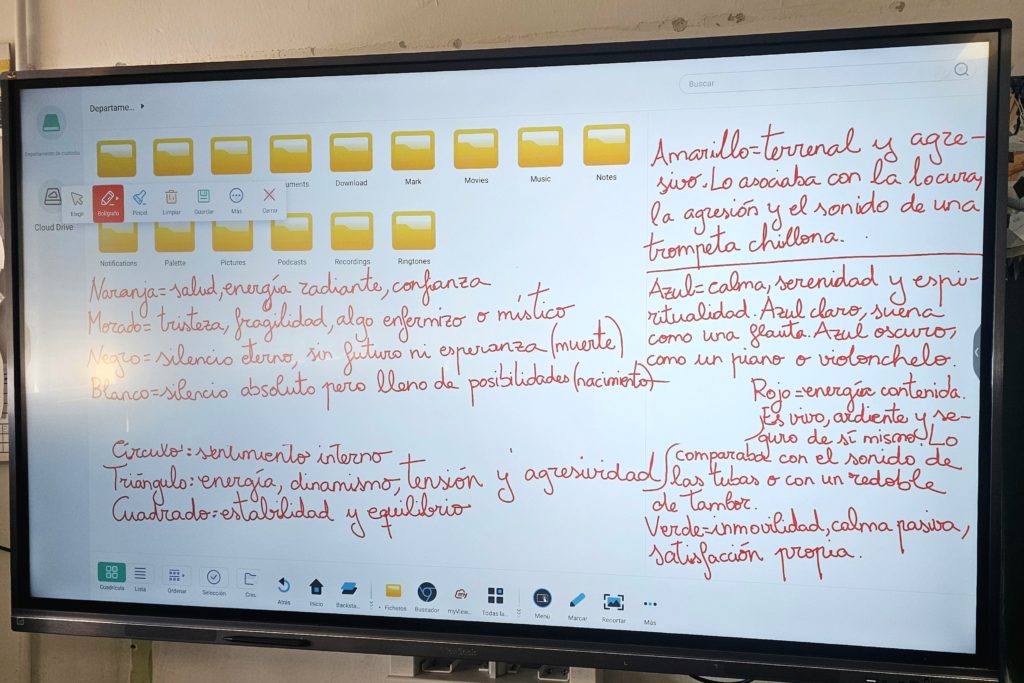 Buscar
Departame...
Departamento de custodia
Cloud Drive
Elegir
Bolígrafo
Pincel
Limpiar
Guardar
Más
Cerrar
uments
Download
Mark
Movies
Music
Notes
Notifications
Palette
Pictures
Podcasts
Recordings
Ringtones
Naranja=salud,energía radiante,confianza
Morado=tristeza, fragilidad, algo enfermizo o místico
Negro=silencio eterno, sin futuro ni esperanza (muerte)
Blanco=silencio absoluto pero lleno de posibilidades (nacimiento)
Círculo: sentimiento interno
Triángulo: energía, dinamismo, tensión y agresividad
Cuadrado=estabilidad y equilibrio
Amarillo=terrenal y agre-
sivo. Lo asociaba con la locura,
la agresión y el sonido de una
trompeta chillona.
Azul=calma, serenidad y espi-
ritualidad. Azul claro, suena
como una flauta. Azul oscuro,
como un piano o violonchelo.
Rojo=energía contenida.
Es vivo, ardiente y se-
guro de sí mismo. Lo
comparaba con el sonido de
las tubas o con un redoble
de tambor.
Verde=inmovilidad, calma pasiva,
satisfacción propia.
Cuadrícula
Lista
Ordenar
Selección
Cres
Atrás
Inicio
Backsta...
Ficheros
Buscador
myView...
Todas la...
Menú
Marcar
Recortar
Más
ViewSonic